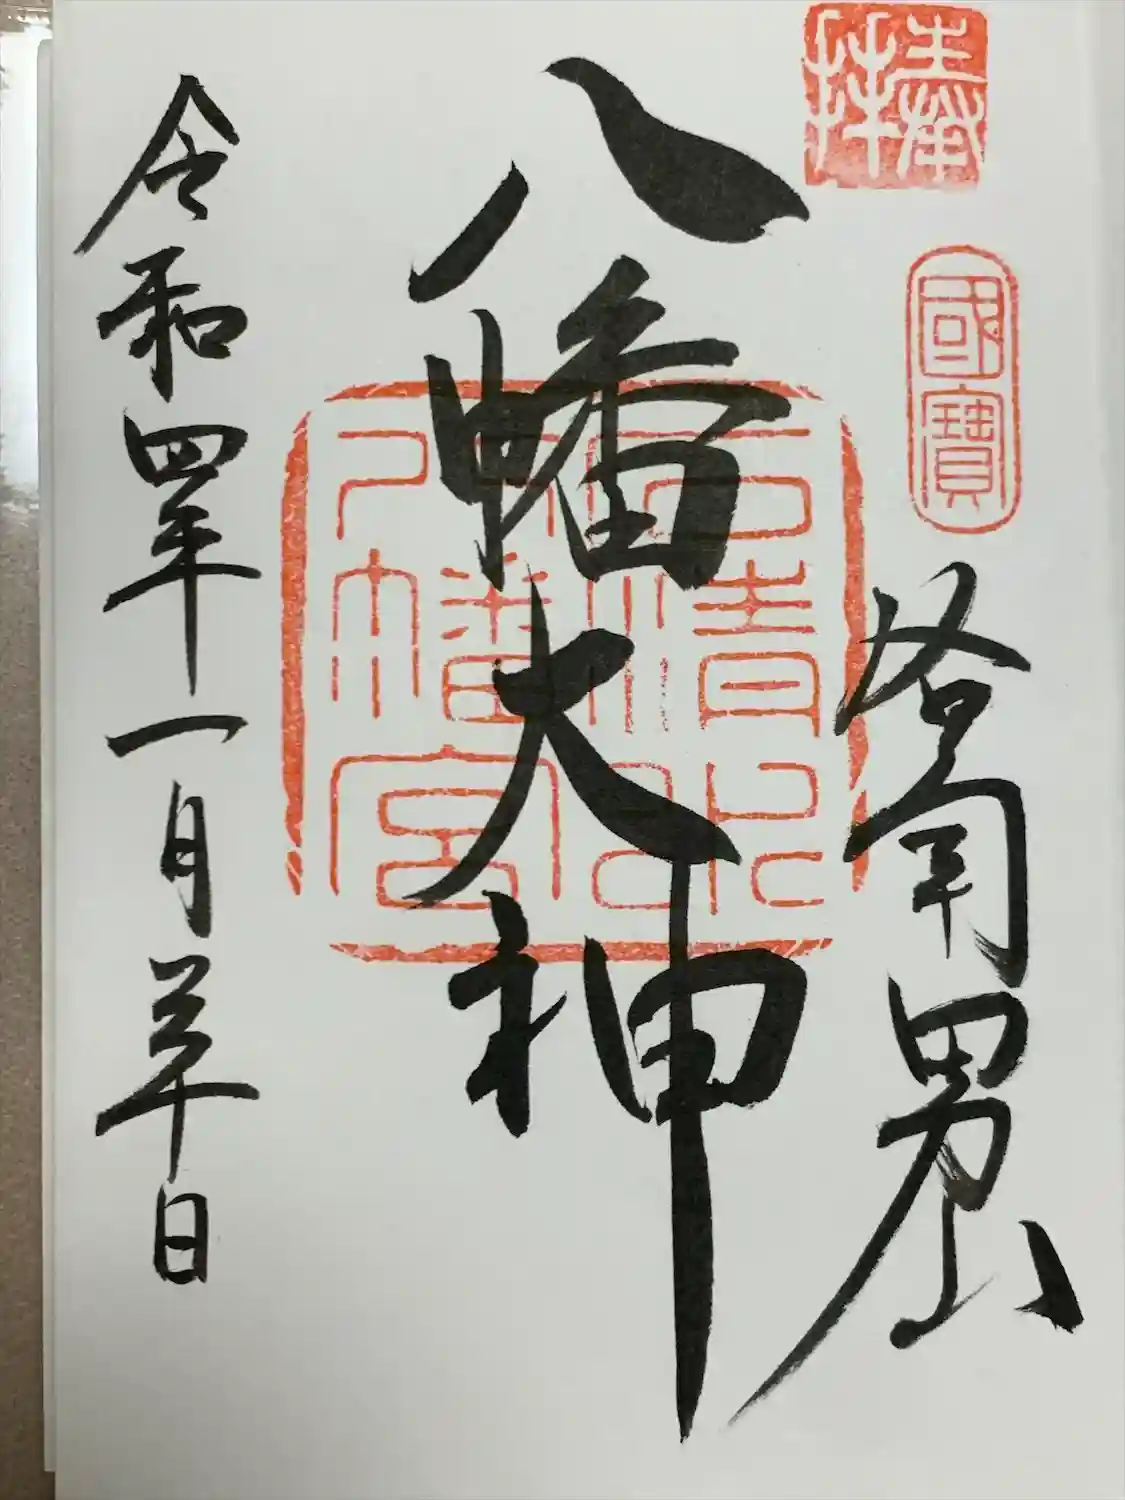 奉拝
國寶
洛南男山
八幡大神
石清水
八幡宮
令和四年一月三十日